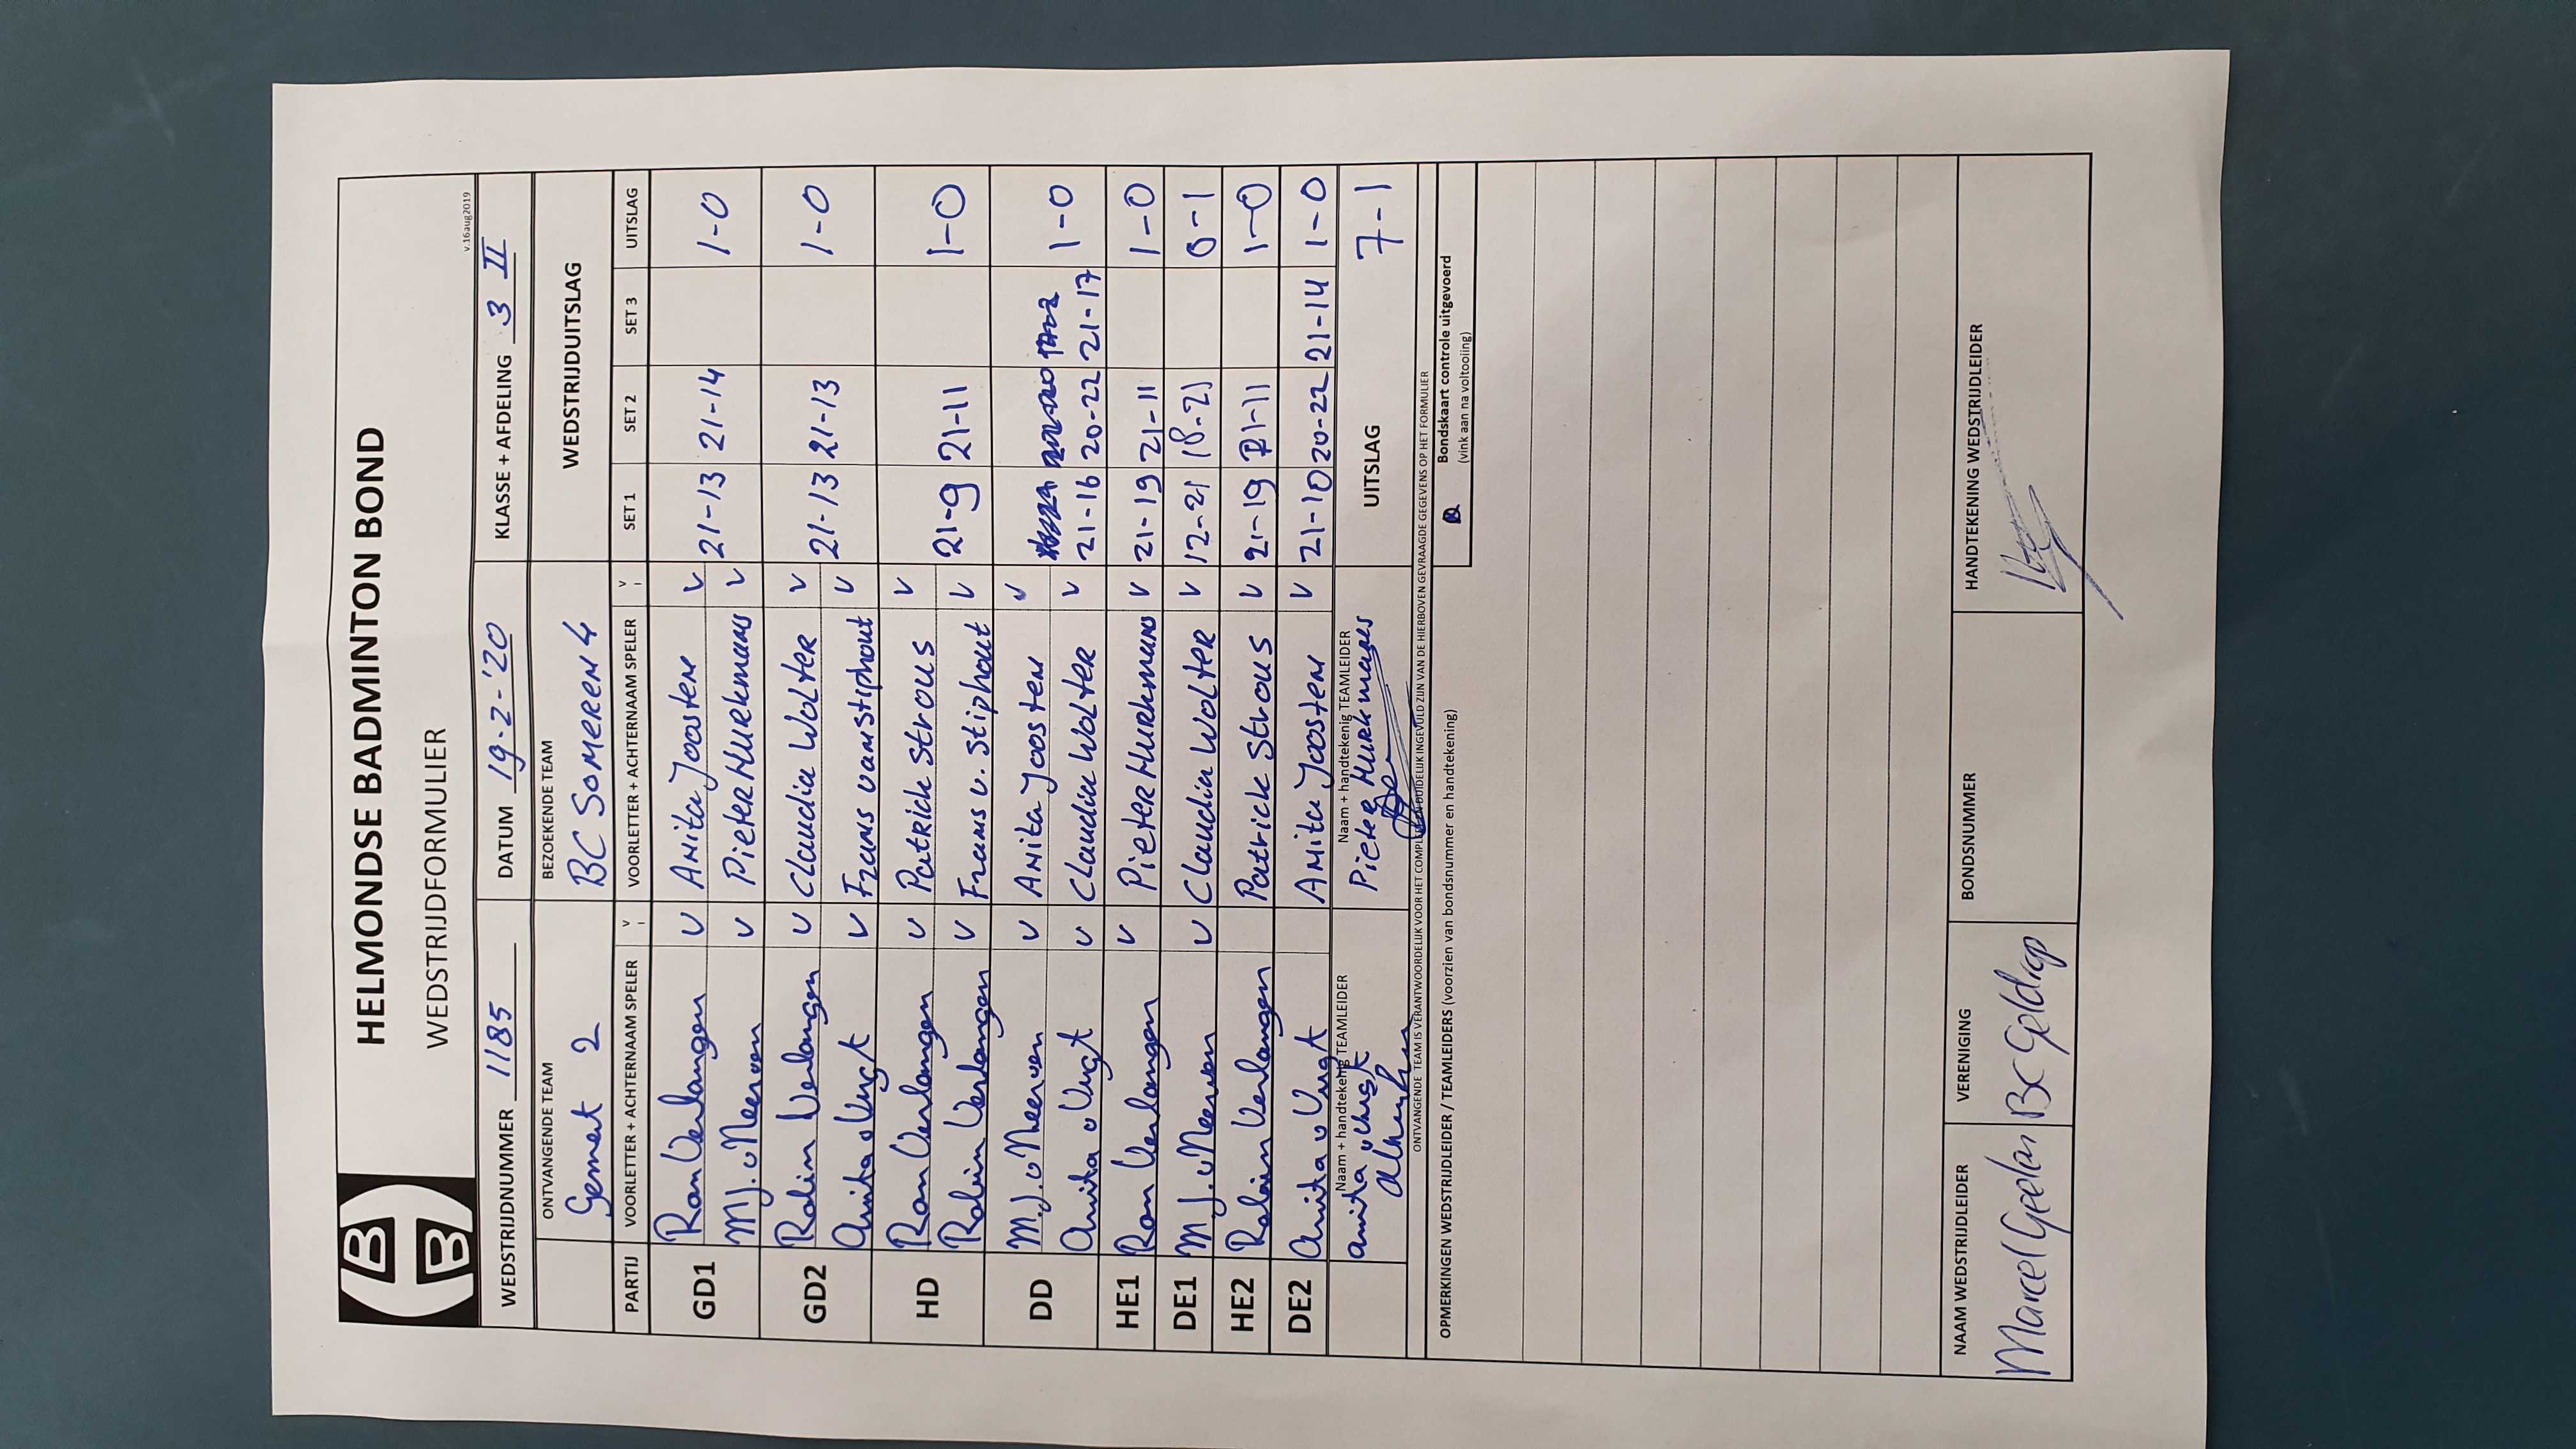 HELMONDSE BADMINTON BOND
WEDSTRIJDFORMULIER
v.16aug2019
WEDSTRIJDNUMMER 1185 DATUM 19-2-'20 KLASSE + AFDELING 3 II
ONTVANGENDE TEAM BEZOEKENDE TEAM WEDSTRIJDUITSLAG
Gemert 2 BC SOMEREN 4
PARTIJ VOORLETTER + ACHTERNAAM SPELER V VOORLETTER + ACHTERNAAM SPELER V SET 1 SET 2 SET 3 UITSLAG
GD1 Ron Verlangen v Anita Joosten v 21-13 21-14 1-0
M.J. v Meerven v Pieter Hurkmans v
GD2 Robin Verlangen v Claudia Wolter v 21-13 21-13 1-0
Anita v Vugt v Frans van Stiphout v
HD Ron Verlangen v Patrick Strous v 21-9 21-11 1-0
Robin Verlangen v Frans v. Stiphout v
DD M.J. v Meerven v Anita Joosten v
Anita v Vugt v Claudia Wolter v 21-16 20-22 21-17 1-0
HE1 Ron Verlangen v Pieter Hurkmans v 21-19 21-11 1-0
DE1 M.J. v Meerven v Claudia Wolter v 12-21 18-21 0-1
HE2 Robin Verlangen Patrick Strous v 21-19 21-11 1-0
DE2 Anita v Vugt Anita Joosten v 21-10 20-22 21-14 1-0
Naam + handtekenig TEAMLEIDER Naam + handtekenig TEAMLEIDER UITSLAG 7-1
Anita v Vugt Pieter Hurkmans
ONTVANGENDE TEAM IS VERANTWOORDELIJK VOOR HET COMPLEET EN DUIDELIJK INGEVULD ZIJN VAN DE HIERBOVEN GEVRAAGDE GEGEVENS OP HET FORMULIER
OPMERKINGEN WEDSTRIJDLEIDER / TEAMLEIDERS (voorzien van bondsnummer en handtekening)
Bondskaart controle uitgevoerd
(vink aan na voltooiing)
NAAM WEDSTRIJDLEIDER VERENIGING BONDSNUMMER HANDTEKENING WEDSTRIJDLEIDER
Marcel Geelan BC Geldrop